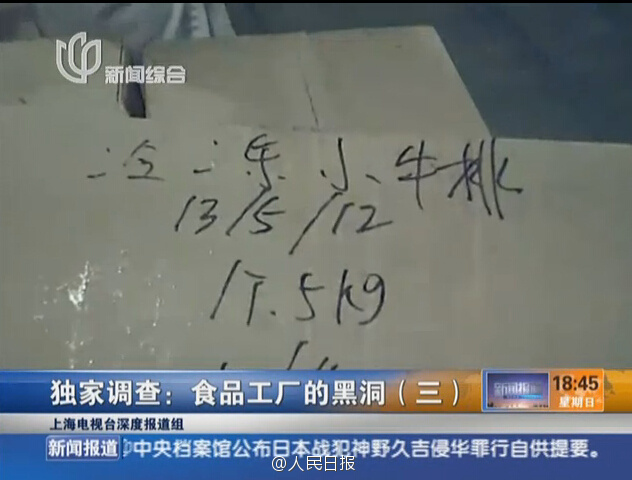 新闻综合
冷冻小牛排
13/5/12
17.5kg
独家调查：食品工厂的黑洞（三）
新闻报道
18:45
星期日
上海电视台深度报道组
新闻报道
中央档案馆公布日本战犯神野久吉侵华罪行自供提要。
@人民日报